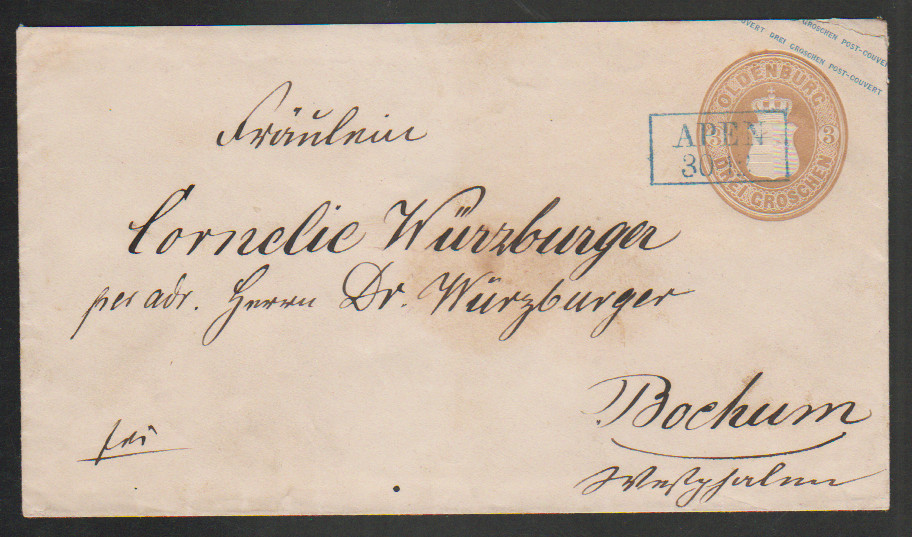 GROSCHEN POST-COUVERT
UVERT DREI GROSCHEN POST-COUVERT
OLDENBURG
3 3
DREI GROSCHEN
APEN
30
Fräulein
Cornelie Würzburger
per adr. Herrn Dr. Würzburger
Bochum
frei
Westphalen